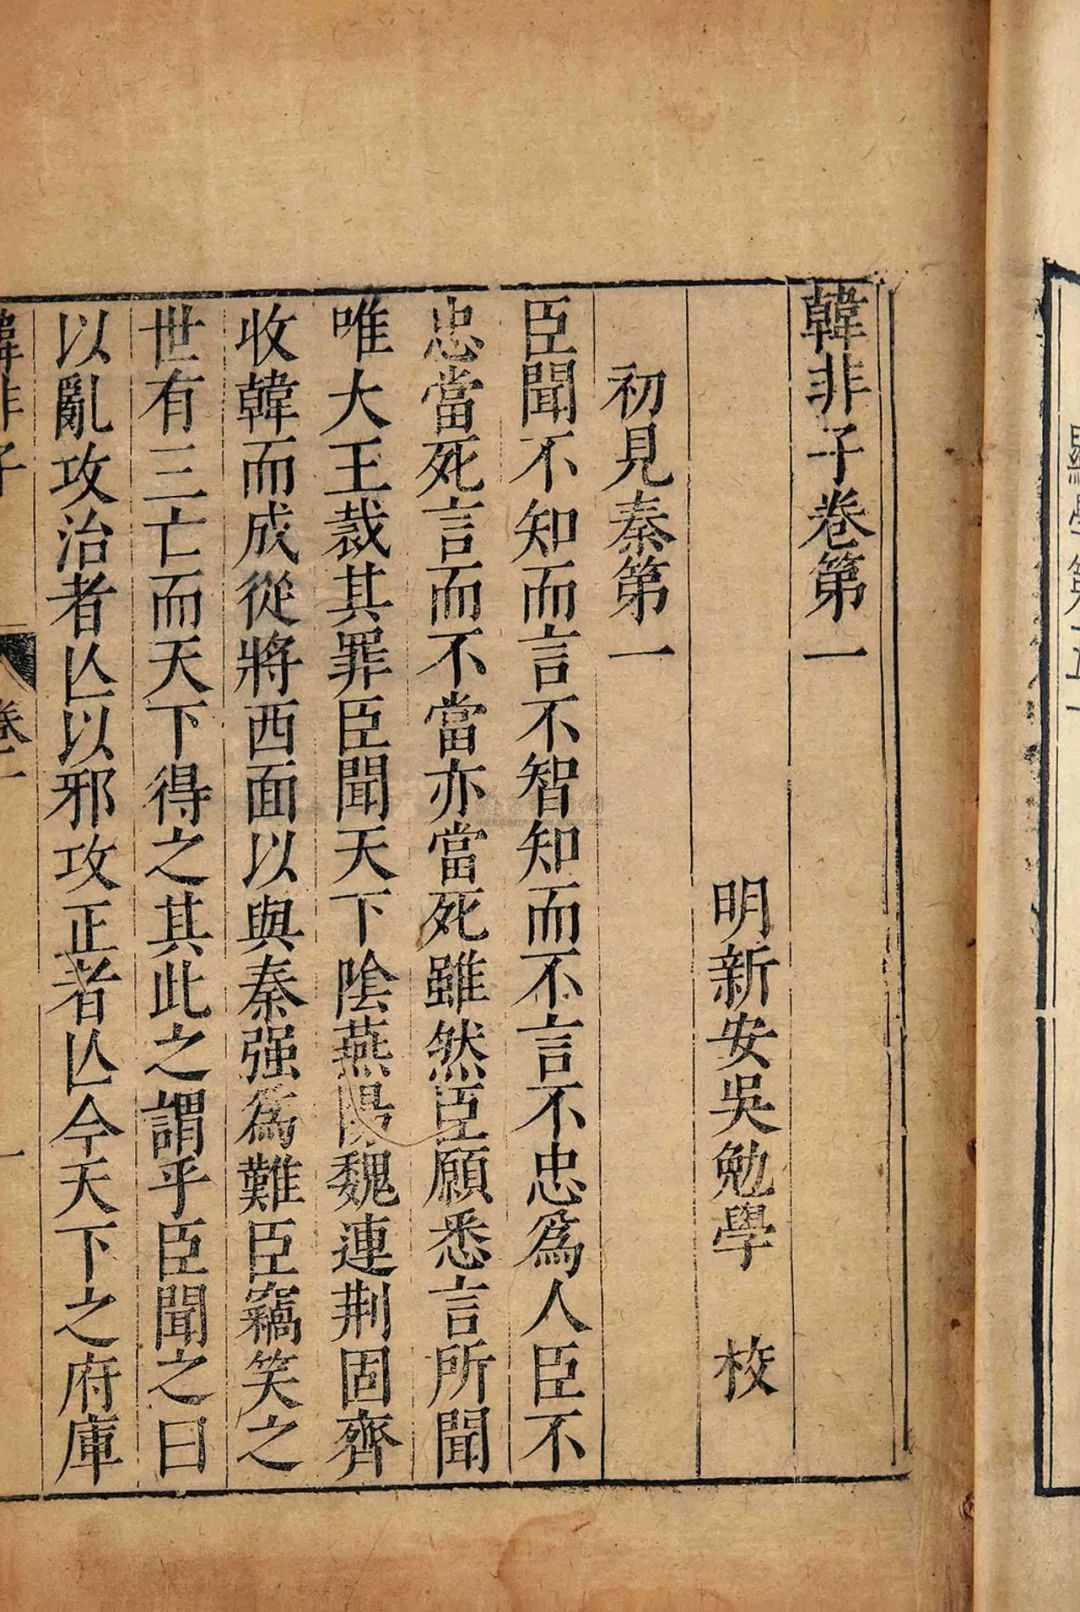 韓非子卷第一
明新安吳勉學　校
初見秦第一
臣聞不知而言不智知而不言不忠爲人臣不
忠當死言而不當亦當死雖然臣願悉言所聞
唯大王裁其罪臣聞天下陰燕陽魏連荆固齊
收韓而成從將西面以與秦强爲難臣竊笑之
世有三亡而天下得之其此之謂乎臣聞之曰
以亂攻治者亾以邪攻正者亾今天下之府庫
韓非子